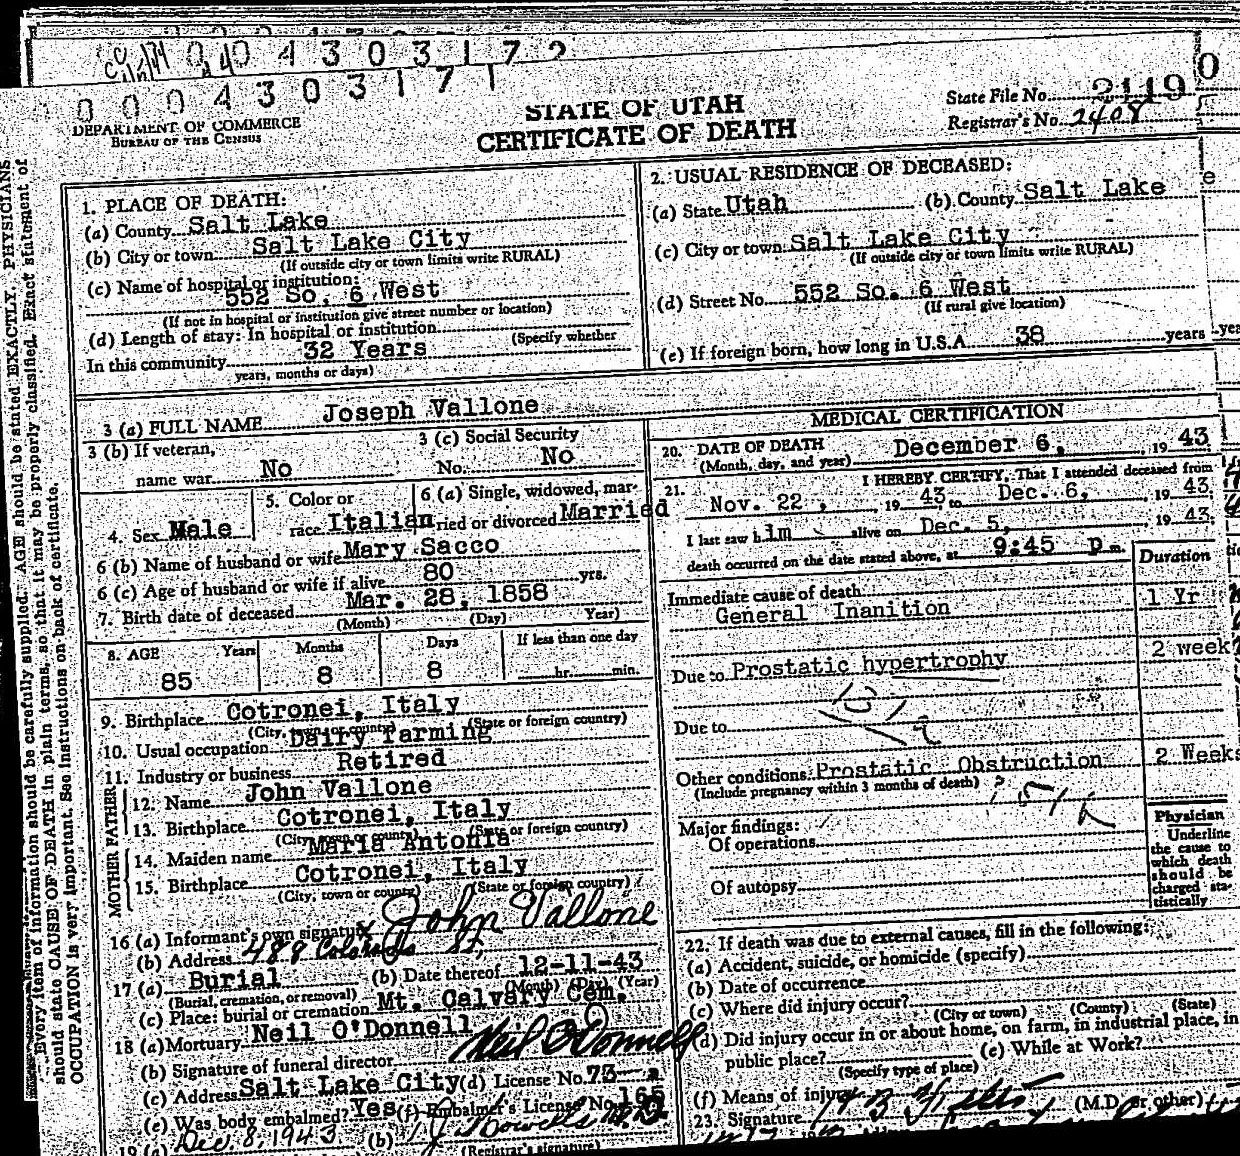 0 0 0 4 3 0 3 1 7 2
0 0 0 4 3 0 3 1 7 1
DEPARTMENT OF COMMERCE
BUREAU OF THE CENSUS
STATE OF UTAH
CERTIFICATE OF DEATH
State File No. 2119
Registrar's No. 2408
Every item of information should be carefully supplied. AGE should be stated EXACTLY. PHYSICIANS
should state CAUSE OF DEATH in plain terms, so that it may be properly classified. Exact statement of
OCCUPATION is very important. See instructions on back of certificate.
1. PLACE OF DEATH:
(a) County Salt Lake
(b) City or town Salt Lake City
(If outside city or town limits write RURAL)
(c) Name of hospital or institution:
552 So. 6 West
(If not in hospital or institution give street number or location)
(d) Length of stay: In hospital or institution
(Specify whether
In this community 32 Years
years, months or days)
2. USUAL RESIDENCE OF DECEASED:
(a) State Utah (b) County Salt Lake
(c) City or town Salt Lake City
(If outside city or town limits write RURAL)
(d) Street No. 552 So. 6 West
(If rural give location)
(e) If foreign born, how long in U.S.A. 38 years
3 (a) FULL NAME Joseph Vallone
3 (b) If veteran,
name war No
3 (c) Social Security
No. No
4. Sex Male
5. Color or
race Italian
6 (a) Single, widowed, mar-
ried or divorced Married
6 (b) Name of husband or wife Mary Sacco
6 (c) Age of husband or wife if alive 80 yrs.
7. Birth date of deceased Mar. 28, 1858
(Month) (Day) Year)
8. AGE Years Months Days If less than one day
85 8 8 hr. min.
9. Birthplace Cotronei, Italy
(City, town or county) (State or foreign country)
10. Usual occupation Dairy Farming
11. Industry or business Retired
FATHER
12. Name John Vallone
13. Birthplace Cotronei, Italy
(City, town or county) (State or foreign country)
MOTHER
14. Maiden name Maria Antonia
15. Birthplace Cotronei, Italy
(City, town or county) (State or foreign country)
16 (a) Informant's own signature John Vallone
(b) Address St.
17 (a) Burial (b) Date thereof 12-11-43
(Burial, cremation, or removal) (Month) (Day) (Year)
(c) Place: burial or cremation Mt. Calvary Cem.
18 (a) Mortuary Neil O'Donnell
(b) Signature of funeral director Neil O'Donnell
(c) Address Salt Lake City (d) License No. 73-a
(e) Was body embalmed? Yes (f) Embalmer's License No. 165
19 (a) Dec 8, 1943 (b) M.D.
(Registrar's signature)
MEDICAL CERTIFICATION
20. DATE OF DEATH December 6, 1943
(Month, day, and year)
21. I HEREBY CERTIFY, That I attended deceased from
Nov. 22, 1943, to Dec. 6, 1943,
I last saw him alive on Dec. 5, 1943,
death occurred on the date stated above, at 9:45 p m.
Duration
Immediate cause of death: 1 Yr
General Inanition
2 week
Due to Prostatic hypertrophy
Due to
Other conditions: Prostatic Obstruction 2 Weeks
(Include pregnancy within 3 months of death)
Major findings:
Of operations
Of autopsy
Physician
Underline
the cause to
which death
should be
charged sta-
tistically
22. If death was due to external causes, fill in the following:
(a) Accident, suicide, or homicide (specify)
(b) Date of occurrence
(c) Where did injury occur?
(City or town) (County) (State)
(d) Did injury occur in or about home, on farm, in industrial place, in
public place? (e) While at Work?
(Specify type of place)
(f) Means of injury
23. Signature (M.D. or other)